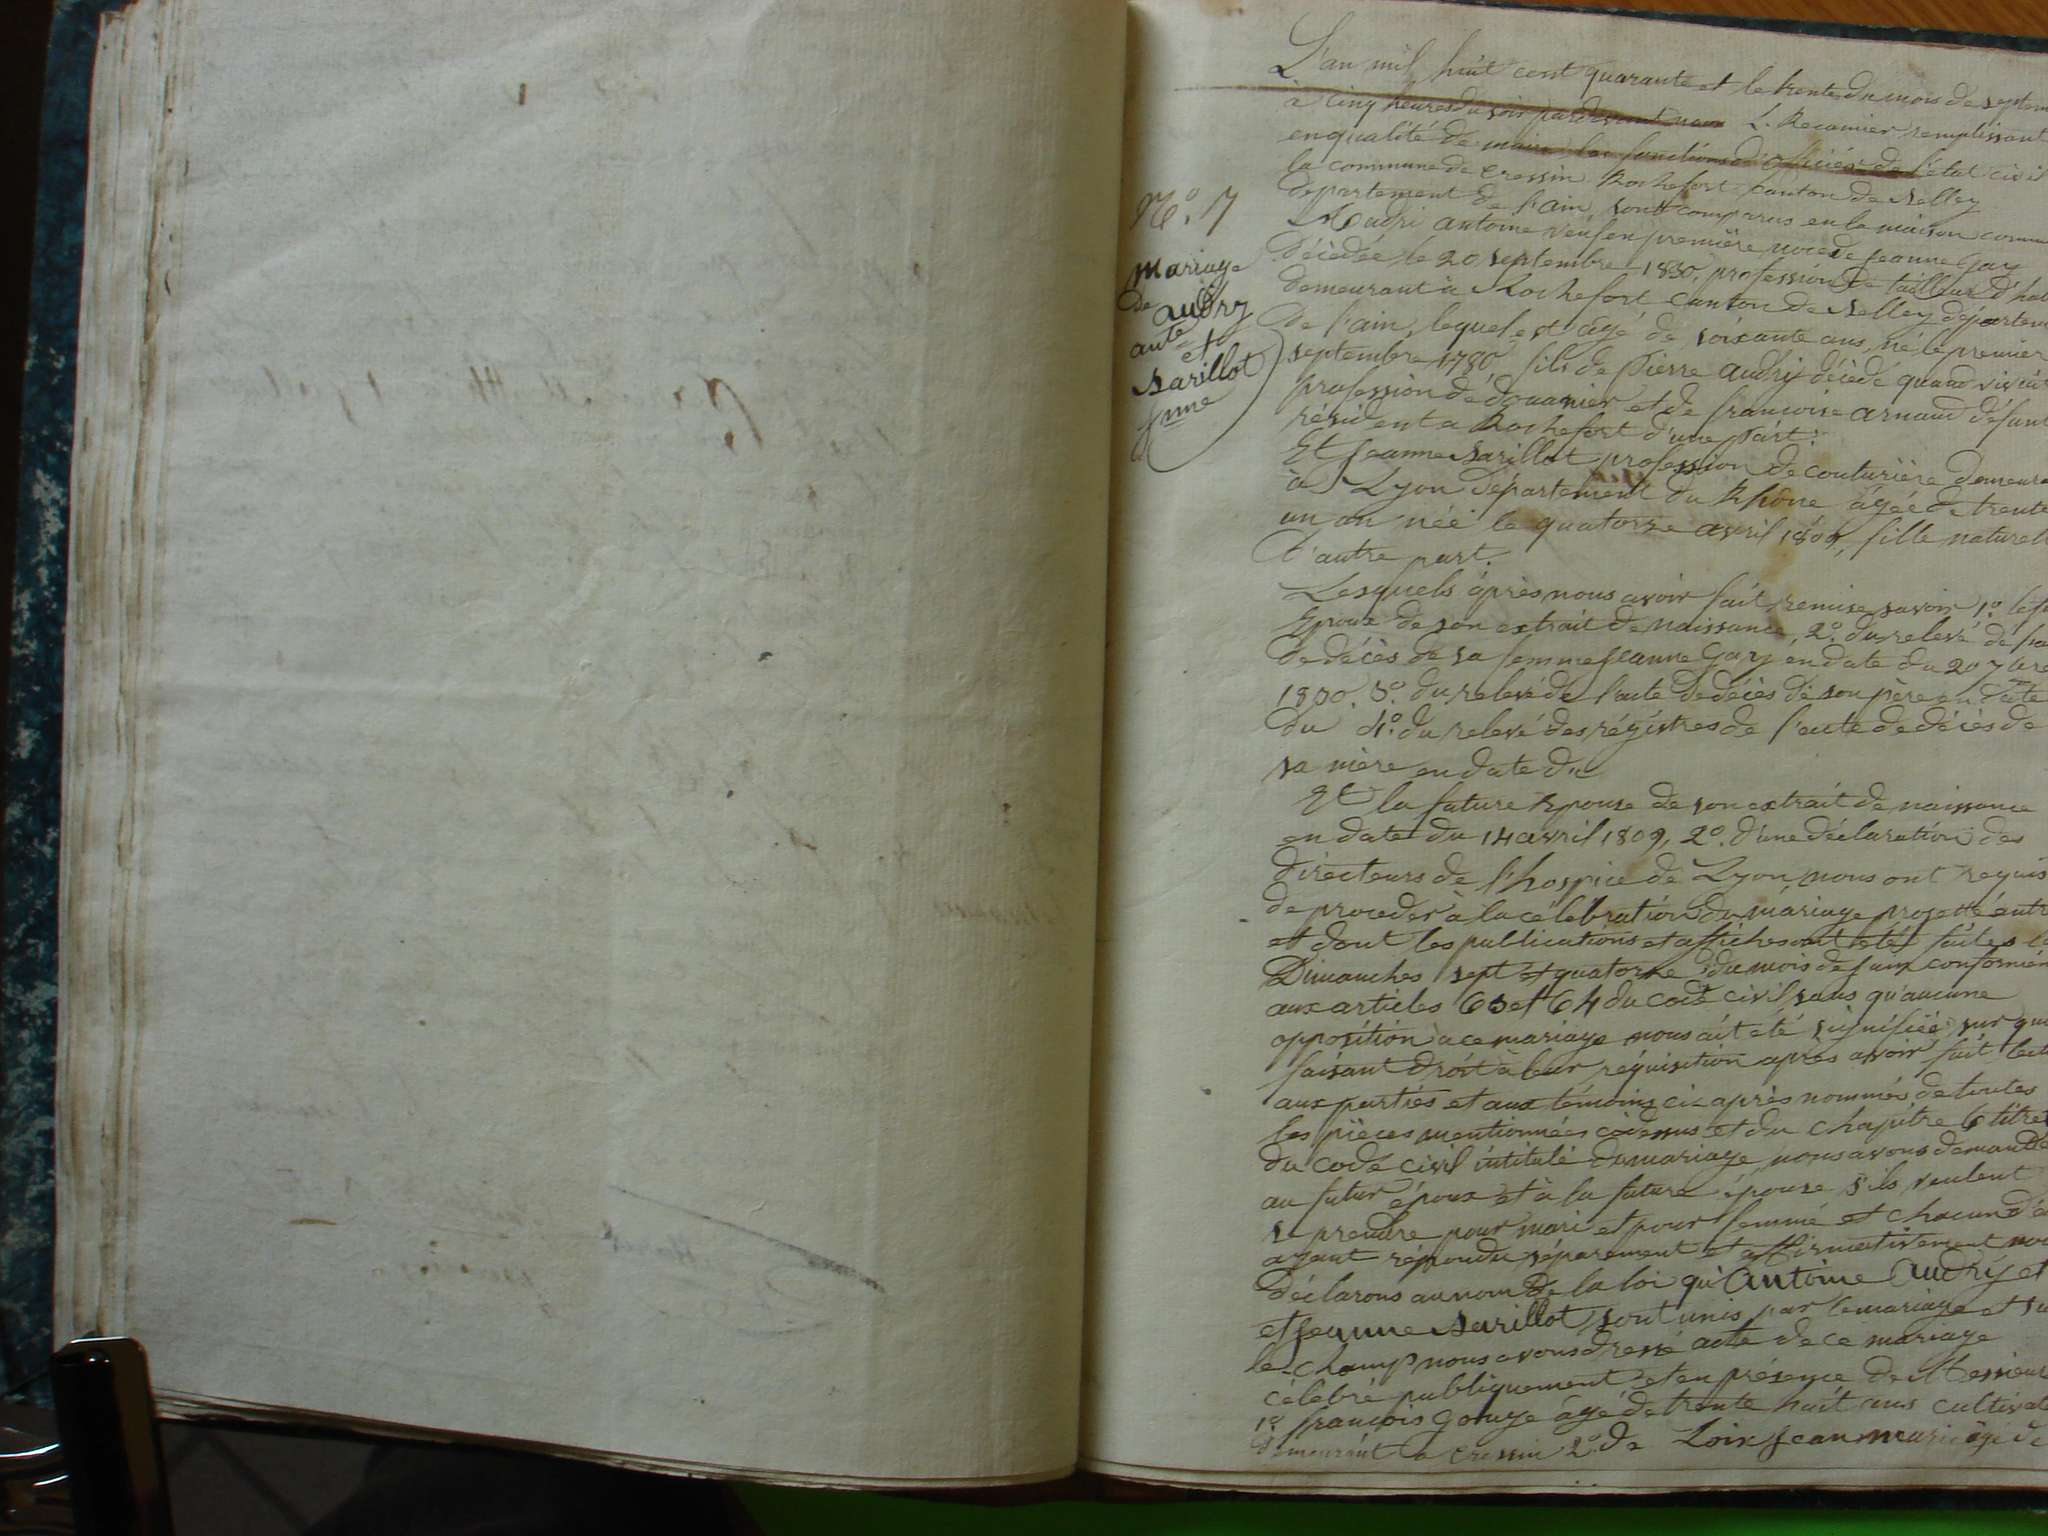 N.º 7
Mariage
de aubry
ante
et
Sarillot
jnne
L'an mil huit cent quarante et le trente du mois de septem
à cinq heures du soir pardevant nous L. Recamier remplissant
en qualité de maire les fonctions d'officier de l'état civil
la commune de Cressin Rochefort canton de Belley
département de l'ain, sont comparus en la maison commu
Audri antoine veuf en première noces de Jeanne Gay
décédée le 20 septembre 1830, profession de tailleur d'hab
demeurant à Rochefort canton de Belley départem
de l'ain, lequel est âgé de soixante ans, né le premier
septembre 1780, fils de Pierre audry décédé quand vivait
profession de douanier et de francoise arnaud défunt
résident a Rochefort d'une part.
Et Jeanne Sarillot profession de couturière demeura
à Lyon département du Rhône âgée de trente
un an née le quatorze avril 1809, fille naturell
d'autre part.
Lesquels après nous avoir fait remise savoir 1º. le fu
Epoux de son extrait de naissance, 2º. du relevé de l'a
de décès de sa femme Jeanne Gay en date du 20 7bre
1830. 3º. du relevé de l'acte de décès de son père en date
du 4º. du relevé des régistres de l'acte de décès de
sa mère en date du
Et la future Epouse de son extrait de naissance
en date du 14 avril 1809, 2º. d'une déclaration des
directeurs de l'hospice de Lyon nous ont requis
de proceder à la célébration du mariage projetté entr
et dont les publications et affiches ont été faites le
Dimanches sept et quatorze du mois de juin conformém
aux articles 63 et 64 du code civil sans qu'aucune
opposition à ce mariage nous ait été signifiée, sur quoi
faisant droit à leur réquisition après avoir fait lectu
aux parties et aux témoins ci-après nommés de toutes
les pièces mentionnées cidessus et du chapitre 6 titre
du code civil intitulé du mariage, nous avons demandé
au futur époux et à la future épouse s'ils veulent
se prendre pour mari et pour femme et chacun d'e
ayant répondu séparement et affirmativement nou
déclarons au nom de la loi qu'Antoine Audry et
et Jeanne Sarillot sont unis par le mariage et su
le-champ nous avons dressé acte de ce mariage
célébré publiquement et en présence de Messieurs
1º. françois Gouge âgé de trente huit ans cultivat
demeurant à Cressin 2º. de Loix Jean marie âgé de